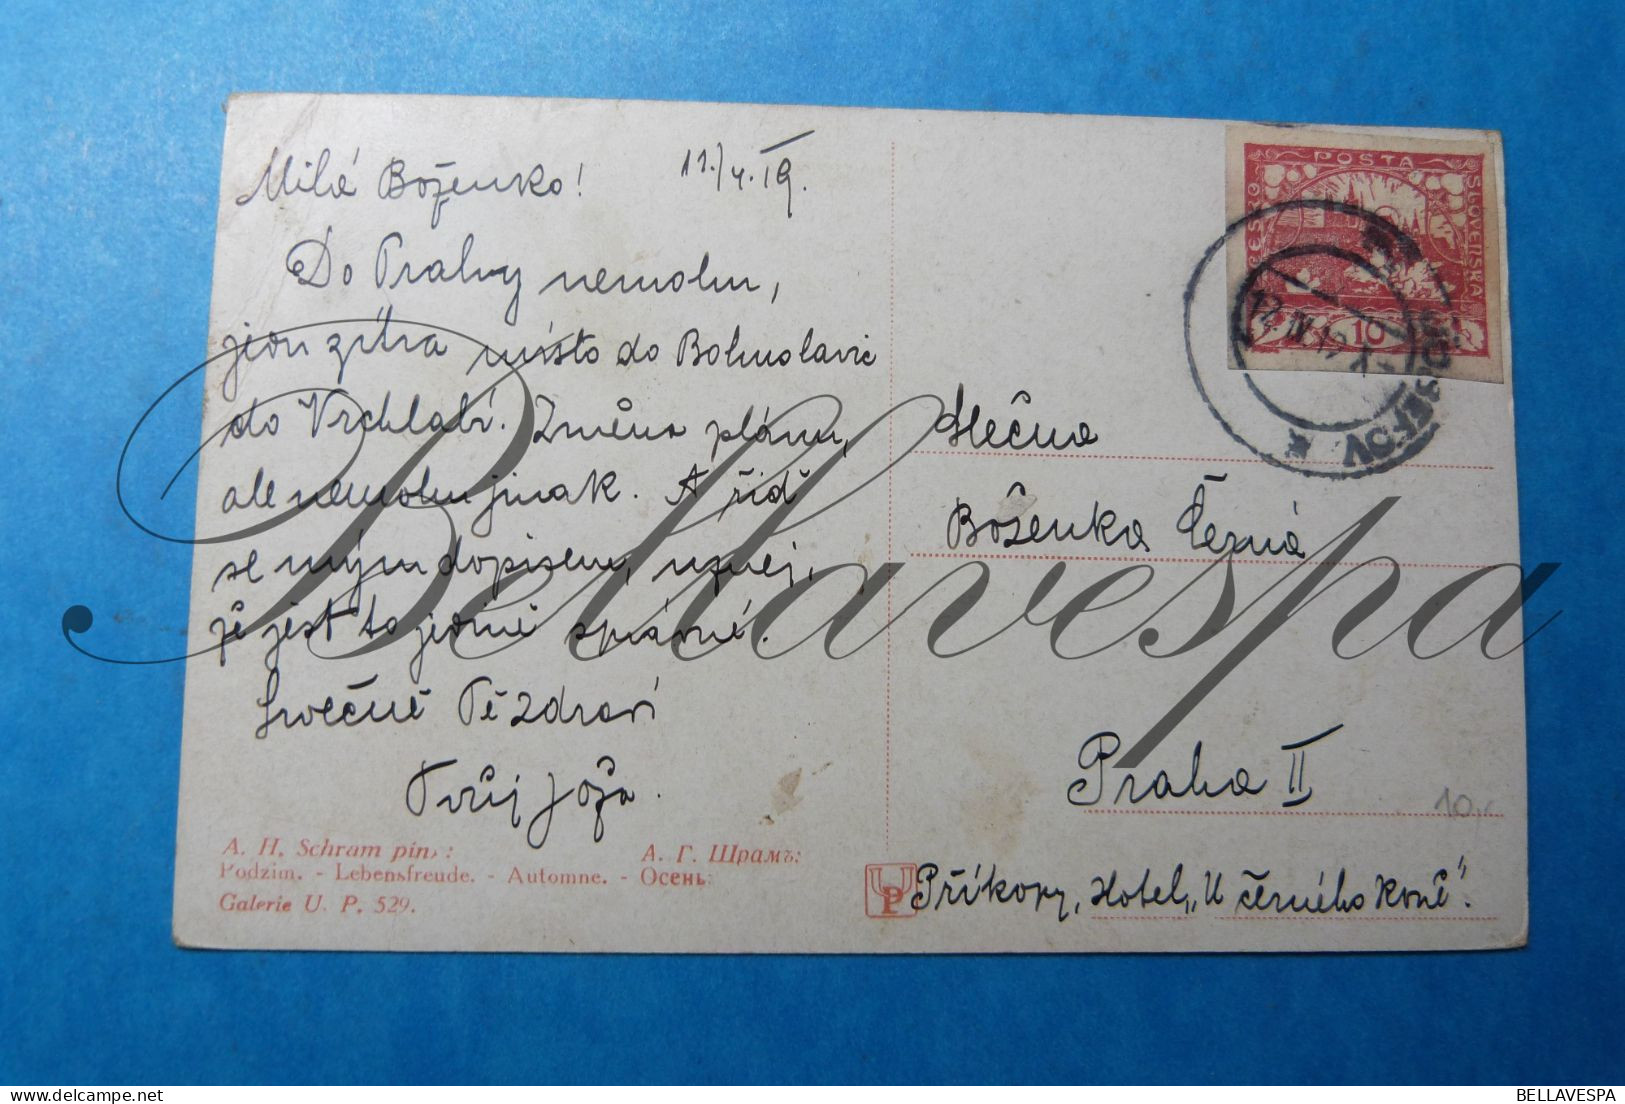 Milá Boženko! 11./4.19.
Do Prahy nemohu,
jedu zítra místo do Bohuslavic
do Vrchlabí. Změna plánu,
ale nemohu jinak. A řiď
se mým dopisem, uznej,
že jest to jedině správné.
Srdečně Tě zdraví
Tvůj Joža.
A. H. Schram pinx: А. Г. Шрамъ:
Podzim. - Lebensfreude. - Automne. - Осень:
Galerie U. P. 529.
UP
POSTA
ČESKO
SLOVENSKÁ
10
JOSEFOV
12.IV.19
Slečna
Boženka Černá
Praha II
10,-
Příkopy, Hotel „U černého koně".
Bellavespa
BELLAVESPA